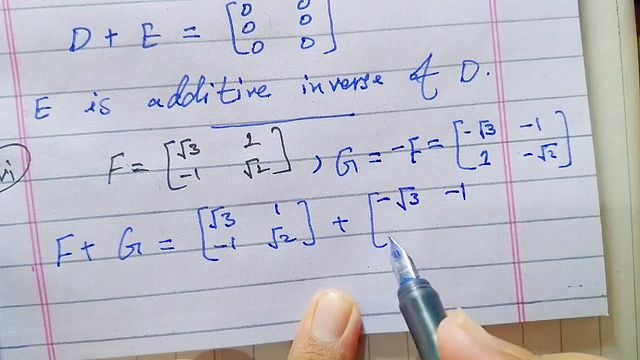 D + E = [0 0
0 0
0 0]
E is additive inverse of D.
vi) F = [√3 1
-1 √2] , G = -F = [-√3 -1
1 -√2]
F + G = [√3 1
-1 √2] + [-√3 -1